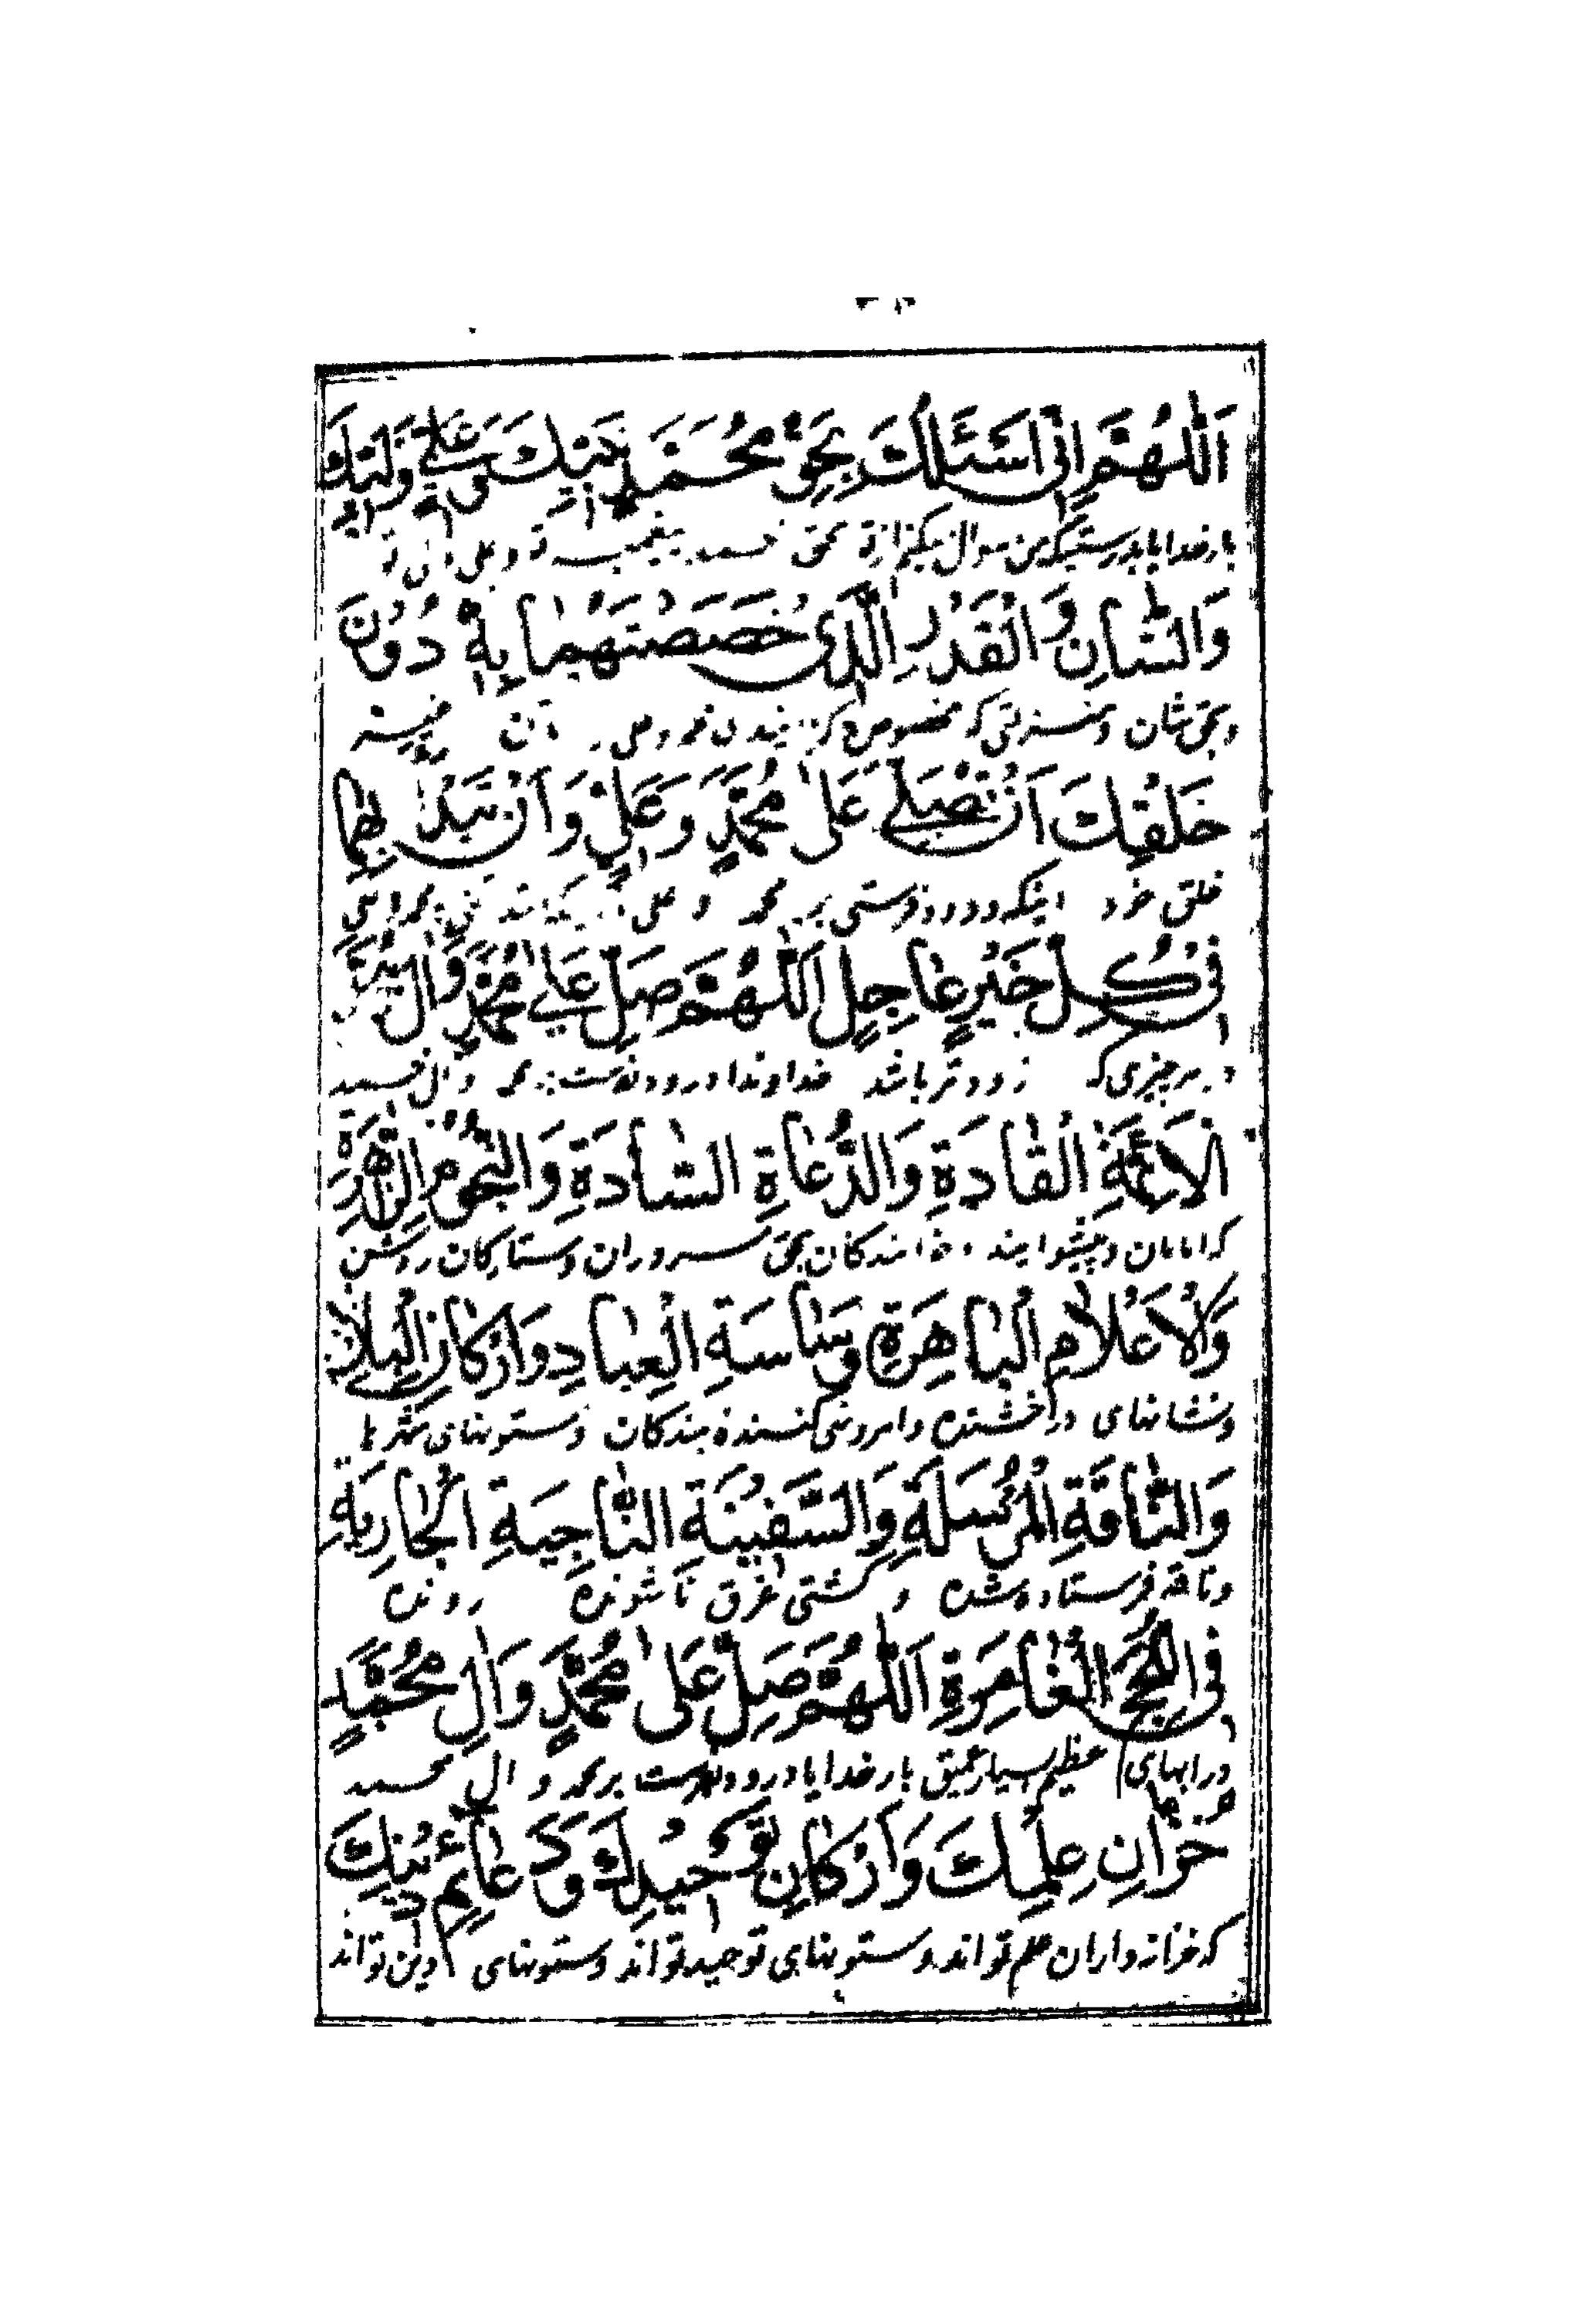 اَللّٰهُمَّ اِنّی اَسْئَلُكَ بِحَقِّ مُحَمَّدٍ نَبِیِّكَ وَ عَلِیٍّ وَلِیِّكَ
بار خدایا بدرستیکه من سوال میکنم از تو بحق محمد پیغمبر تو و علی ولی تو
وَالشَّاْنِ وَ الْقَدْرِ الَّذی خَصَصْتَهُمٰا بِهِ دُونَ
و بحق شان و منزلتی که مخصوص محمد و علی
خَلْقِكَ اَنْ تُصَلِّیَ عَلیٰ مُحَمَّدٍ وَ عَلِیٍّ وَ اَنْ تَبْدَأَ بِهِمٰا
خلق خود اینکه درود فرستی بر محمد و علی
فی كُلِّ خَیْرٍ عٰاجِلٍ اَللّٰهُمَّ صَلِّ عَلیٰ مُحَمَّدٍ وَ اٰلِ مُحَمَّدٍ
چیزی که زودتر باشد خداوندا درود بفرست بر محمد و ال محمد
الْاَئِمَّةِ الْقٰادَةِ وَ الدُّعٰاةِ السّٰادَةِ وَ النُّجُومِ الزّٰاهِرَةِ
که امامان و پیشوایند و خوانندکان بحق سروران و ستارکان روشن
وَ الْاَعْلٰامِ الْبٰاهِرَةِ وَ سٰاسَةِ الْعِبٰادِ وَ اَرْكٰانِ الْبِلٰادِ
و نشانهای درخشنده و امر و نهی کننده بندکان و ستونهای شهرها
وَ النّٰاقَةِ الْمُرْسَلَةِ وَ السَّفینَةِ النّٰاجِیَةِ الْجٰارِیَةِ
و ناقه فرستاده شده و کشتی غرق ناشونده رونده
فِی اللُّجَجِ الْغٰامِرَةِ اَللّٰهُمَّ صَلِّ عَلیٰ مُحَمَّدٍ وَ اٰلِ مُحَمَّدٍ
در ابهای عظیم بسیار عمیق بار خدایا درود بفرست بر محمد و ال محمد
خُزّٰانِ عِلْمِكَ وَ اَرْكٰانِ تَوْحیدِكَ وَ دَعٰائِمِ دینِكَ
که خزانه داران علم تواند و ستونهای توحید تواند و ستونهای دین تواند